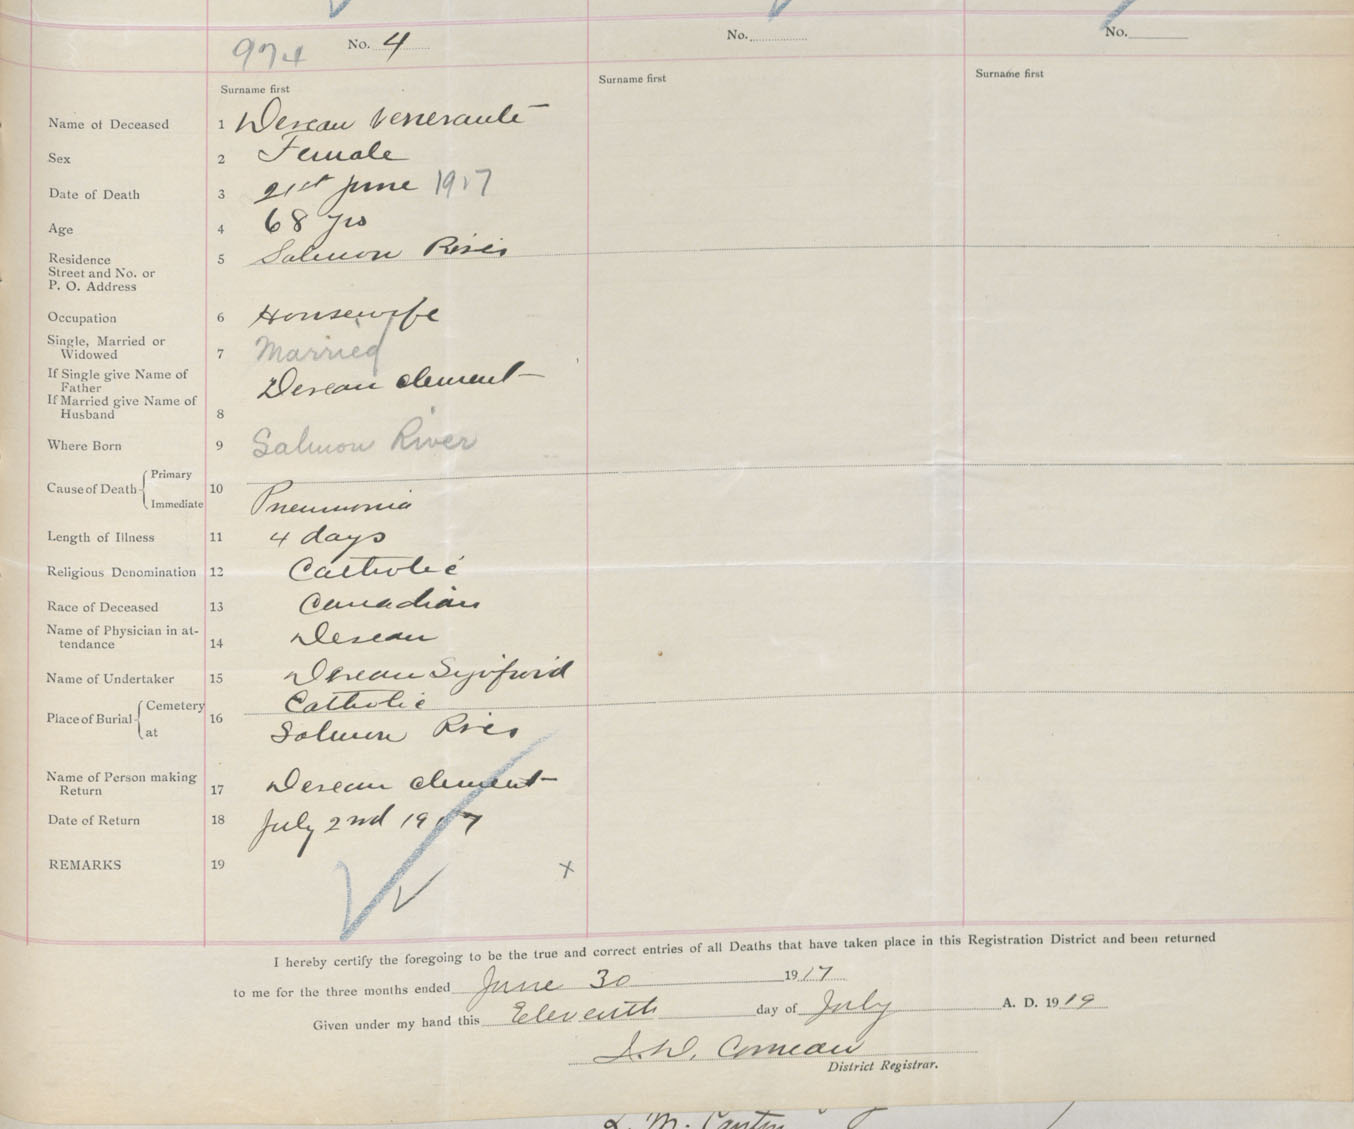 974 No. 4 No. No.
Surname first Surname first Surname first
Name of Deceased 1 Deveau Venerante
Sex 2 Female
Date of Death 3 21st June 1917
Age 4 68 yrs
Residence 5 Salmon River
Street and No. or
P. O. Address
Occupation 6 Housewife
Single, Married or
Widowed 7 Married
If Single give Name of
Father Deveau Clement
If Married give Name of
Husband 8
Where Born 9 Salmon River
Primary
Cause of Death 10
Immediate Pneumonia
Length of Illness 11 4 days
Religious Denomination 12 Catholic
Race of Deceased 13 Canadian
Name of Physician in at-
tendance 14 Deveau
Name of Undertaker 15 Deveau
Cemetery Catholic
Place of Burial 16
at Salmon River
Name of Person making
Return 17 Deveau Clement
Date of Return 18 July 2nd 1917
REMARKS 19 x
I hereby certify the foregoing to be the true and correct entries of all Deaths that have taken place in this Registration District and been returned
to me for the three months ended June 30 1917
Given under my hand this Eleventh day of July A. D. 1919
Comeau
District Registrar.